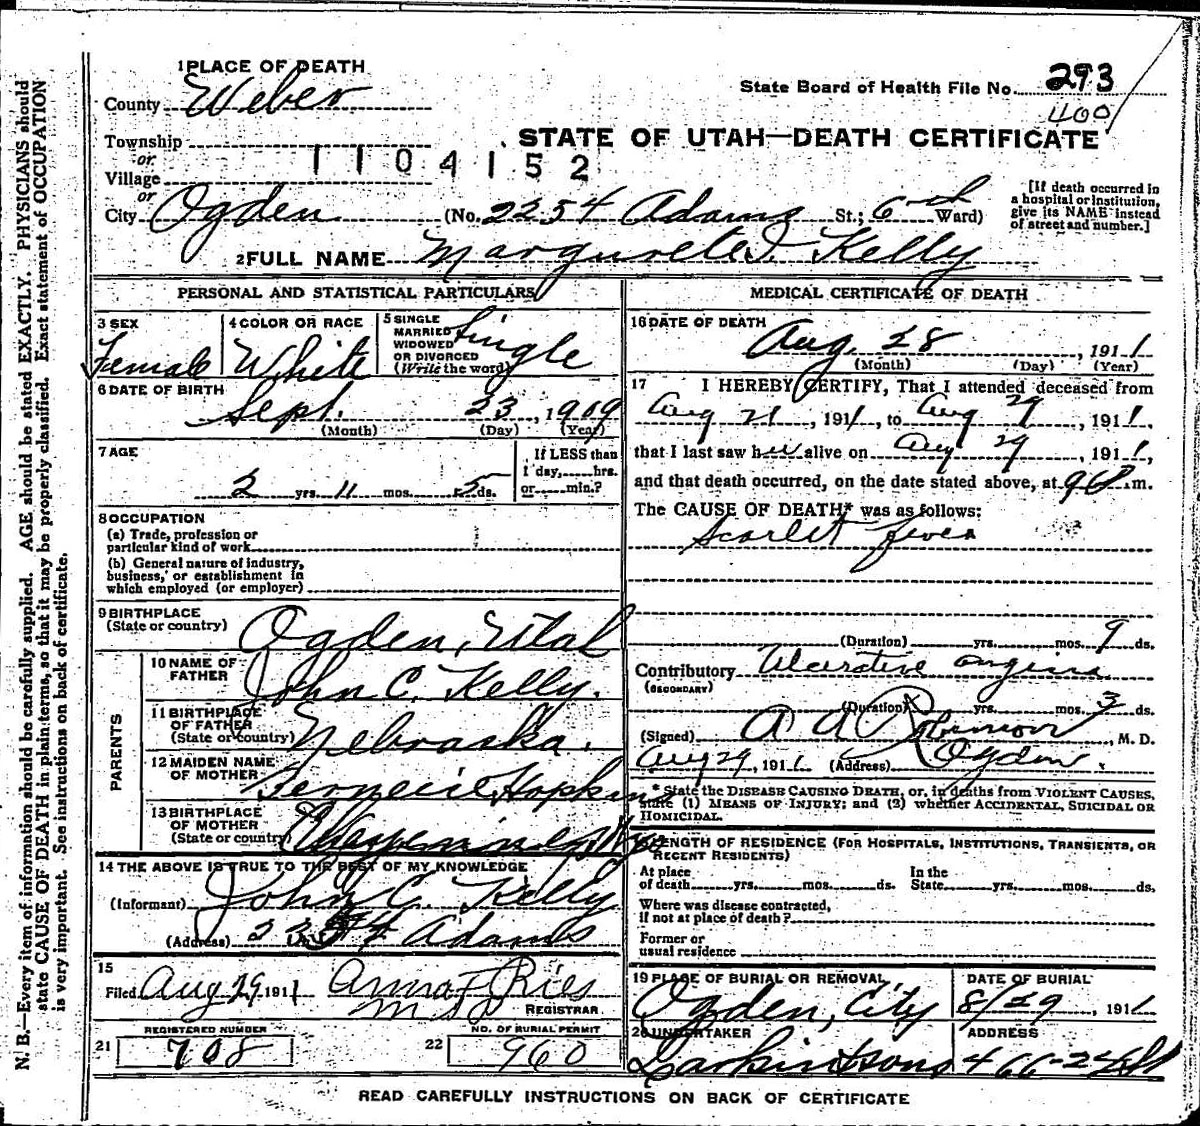 1 PLACE OF DEATH
County Weber
State Board of Health File No. 293
400
Township
or
Village
1104152
STATE OF UTAH—DEATH CERTIFICATE
or
City Ogden (No. 2254 Adams St.; 6th Ward)
[If death occurred in
a hospital or institution,
give its NAME instead
of street and number.]
2 FULL NAME Kelly
PERSONAL AND STATISTICAL PARTICULARS
3 SEX
Female
4 COLOR OR RACE
White
5 SINGLE
MARRIED
WIDOWED
OR DIVORCED
(Write the word)
Single
6 DATE OF BIRTH
Sept. 23, 1909
(Month) (Day) (Year)
7 AGE
2 yrs. 11 mos. 5 ds.
If LESS than
1 day, hrs.
or min.?
8 OCCUPATION
(a) Trade, profession or
particular kind of work
(b) General nature of industry,
business, or establishment in
which employed (or employer)
9 BIRTHPLACE
(State or country)
Ogden, Utah
PARENTS
10 NAME OF
FATHER
John C. Kelly.
11 BIRTHPLACE
OF FATHER
(State or country)
Nebraska.
12 MAIDEN NAME
OF MOTHER
Hopkins
13 BIRTHPLACE
OF MOTHER
(State or country)
14 THE ABOVE IS TRUE TO THE BEST OF MY KNOWLEDGE
(Informant) John C. Kelly
(Address) Adams
15
Filed Aug 29, 1911 Anna F Ries
REGISTRAR
REGISTERED NUMBER
21 708
NO. OF BURIAL PERMIT
22 960
MEDICAL CERTIFICATE OF DEATH
16 DATE OF DEATH
Aug. 28, 1911
(Month) (Day) (Year)
17 I HEREBY CERTIFY, That I attended deceased from
Aug 21, 1911, to Aug 29, 1911,
that I last saw her alive on Aug 29, 1911,
and that death occurred, on the date stated above, at 9 P m.
The CAUSE OF DEATH* was as follows:
Scarlet fever
(Duration) yrs. mos. 9 ds.
Contributory Ulcerative angina
(SECONDARY)
(Duration) yrs. mos. 3 ds.
(Signed) A A Robinson, M. D.
Aug 29, 1911 (Address) Ogden.
* State the DISEASE CAUSING DEATH, or, in deaths from VIOLENT CAUSES,
state (1) MEANS OF INJURY; and (2) whether ACCIDENTAL, SUICIDAL OR
HOMICIDAL.
LENGTH OF RESIDENCE (FOR HOSPITALS, INSTITUTIONS, TRANSIENTS, OR
RECENT RESIDENTS)
At place
of death yrs. mos. ds.
In the
State yrs. mos. ds.
Where was disease contracted,
if not at place of death?
Former or
usual residence
19 PLACE OF BURIAL OR REMOVAL
Ogden, City
DATE OF BURIAL
8/29, 1911
20 UNDERTAKER
Larkin & Sons
ADDRESS
466-24 St
READ CAREFULLY INSTRUCTIONS ON BACK OF CERTIFICATE
N. B.—Every item of information should be carefully supplied. AGE should be stated EXACTLY. PHYSICIANS should
state CAUSE OF DEATH in plain terms, so that it may be properly classified. Exact statement of OCCUPATION
is very important. See instructions on back of certificate.